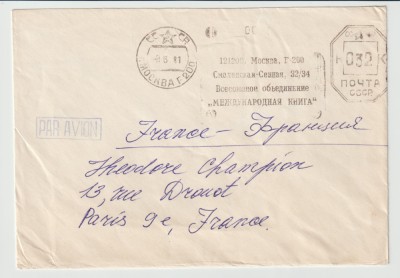 СССР
-8 5 81
МОСКВА Г-200
121200, Москва, Г-200
Смоленская-Сенная, 32/34
Всесоюзное объединение
„МЕЖДУНАРОДНАЯ КНИГА“
032 К
ПОЧТА
СССР
PAR AVION
France - Франция
Theodore Champion
13, rue Drouot
Paris 9e, France.